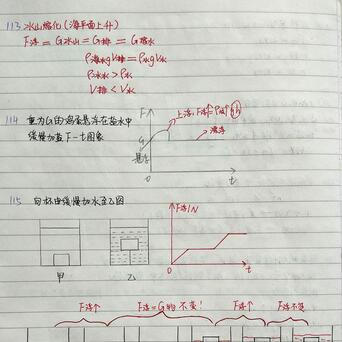 113 冰山熔化(海平面上升)
F浮 = G冰山 = G排 = G熔水
ρ海水gV排 = ρ水gV水
ρ海水 > ρ水
V排 < V水
114 重为G的鸡蛋悬浮在盐水中
缓慢加盐 F-t图象
F
上浮: F浮↑=ρ液↑
G
悬浮
漂浮
0
t
115 向杯中缓慢加水至乙图
甲
乙
F浮/N
0
t
F浮↑
F浮=G物 不变!
F浮↑
F浮不变